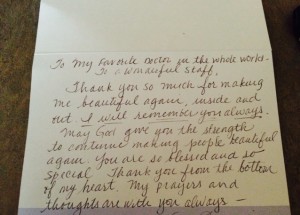 To My Favorite Doctor in the whole World -
To a wonderful staff,
Thank you so much for making
me beautiful again, inside and
out. I will remember you always.
May God give you the strength
to continue making people beautiful
again. You are so blessed and so
special. Thank you from the bottom
of my heart. My prayers and
thoughts are with you always -